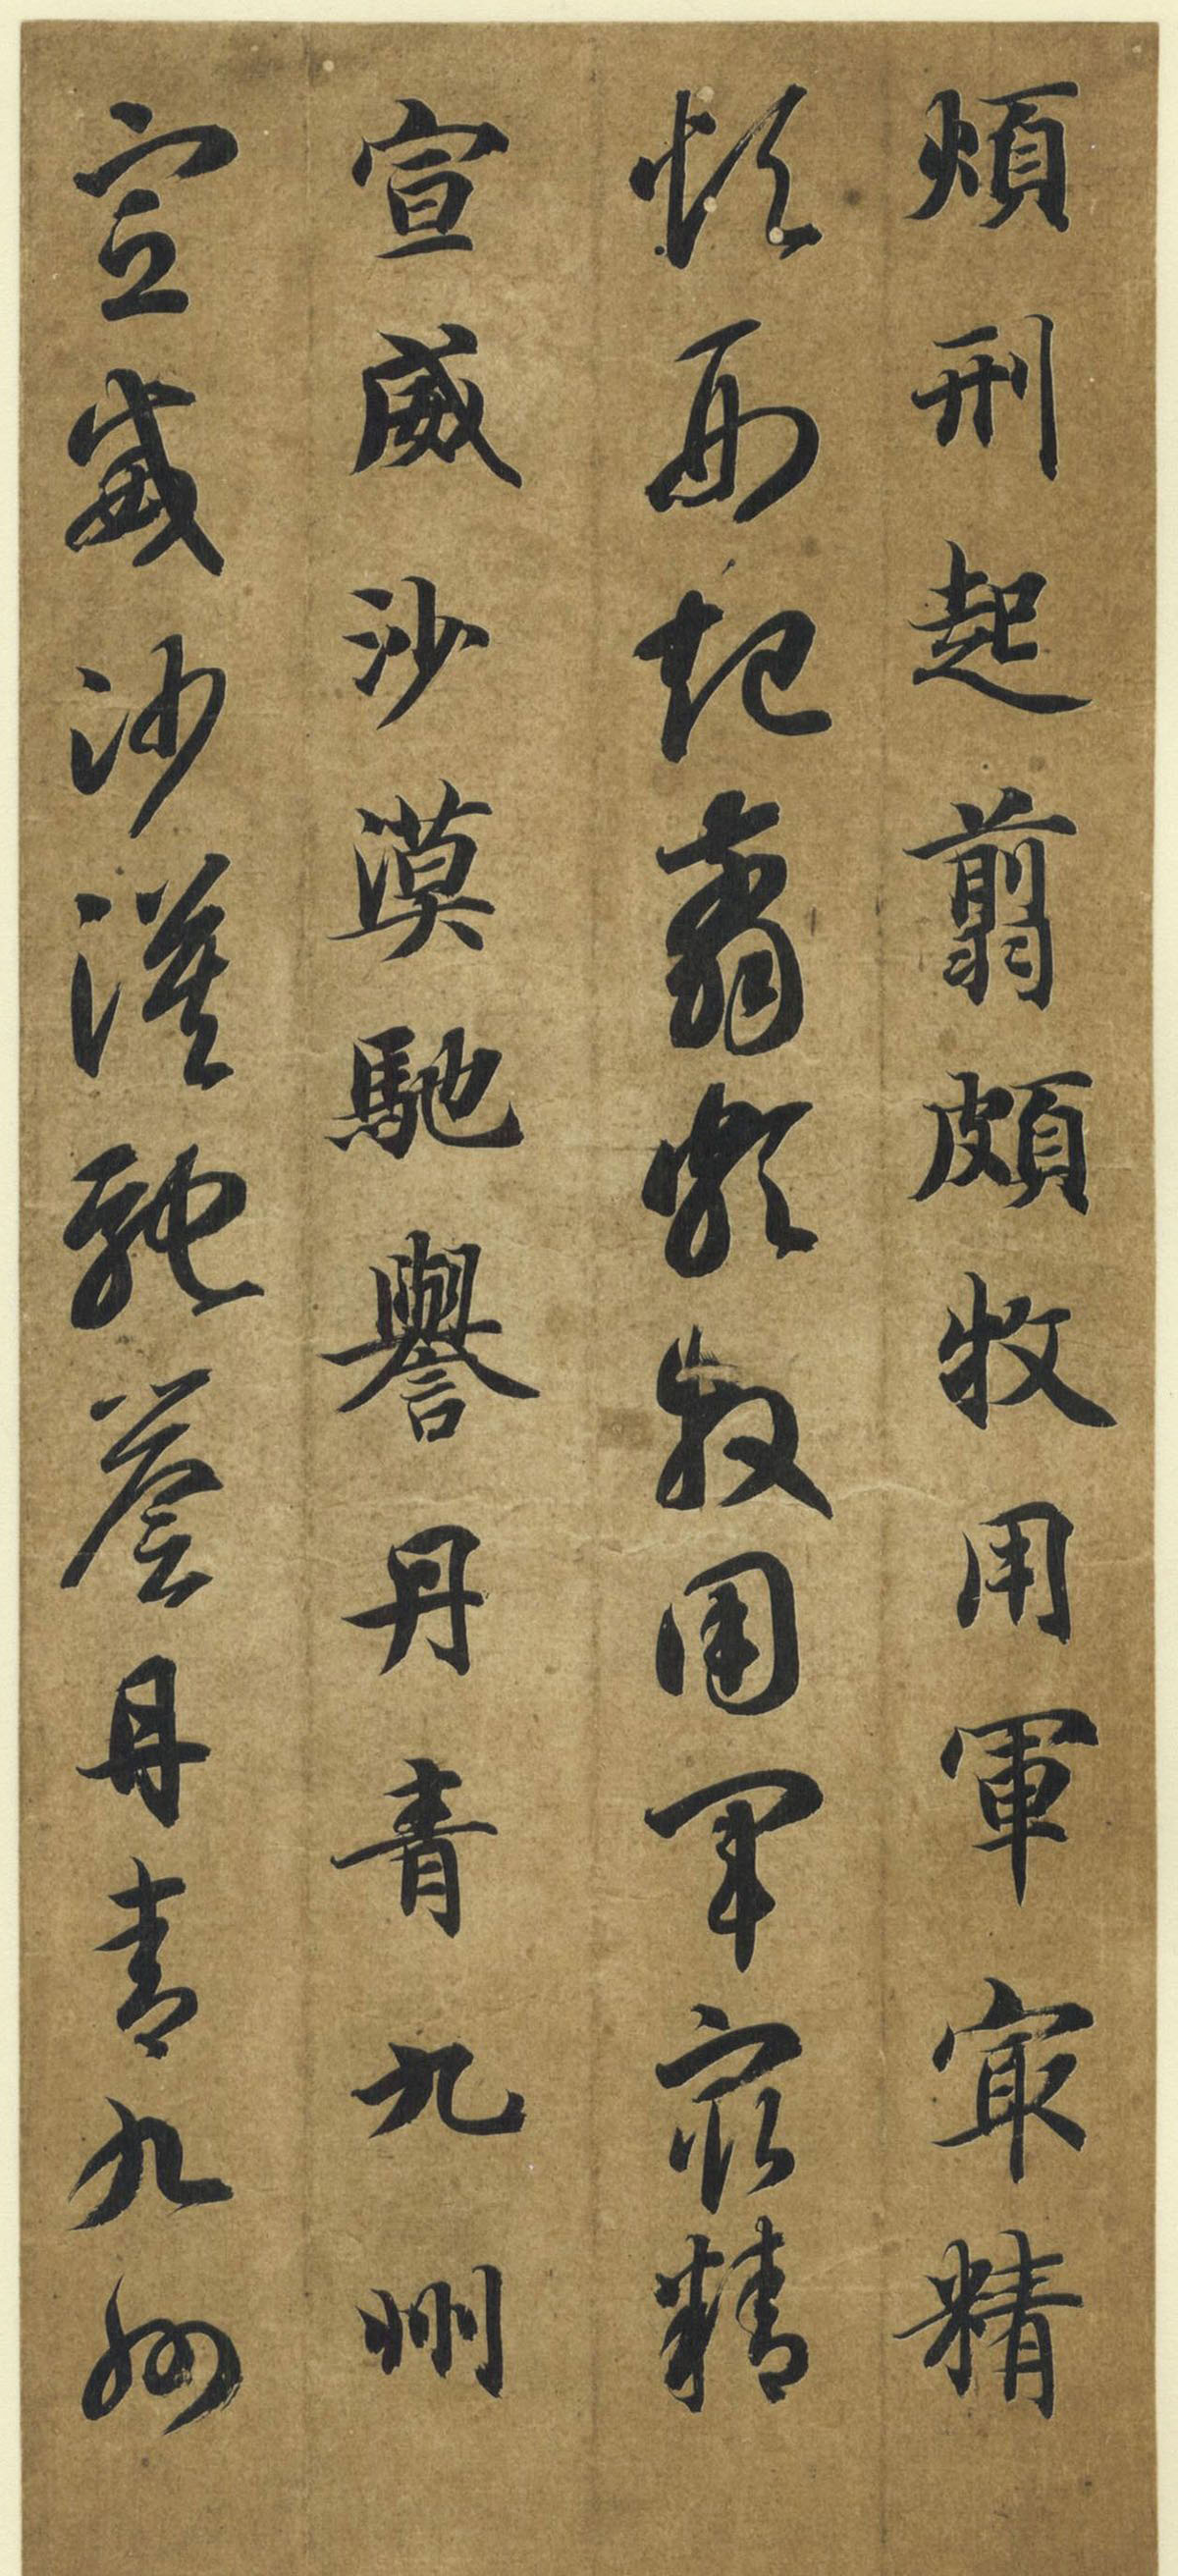 煩刑起翦頗牧用軍寂精
煩刑起翦頗牧用軍寂精
宣威沙漠馳譽丹青九州
宣威沙漠馳譽丹青九州